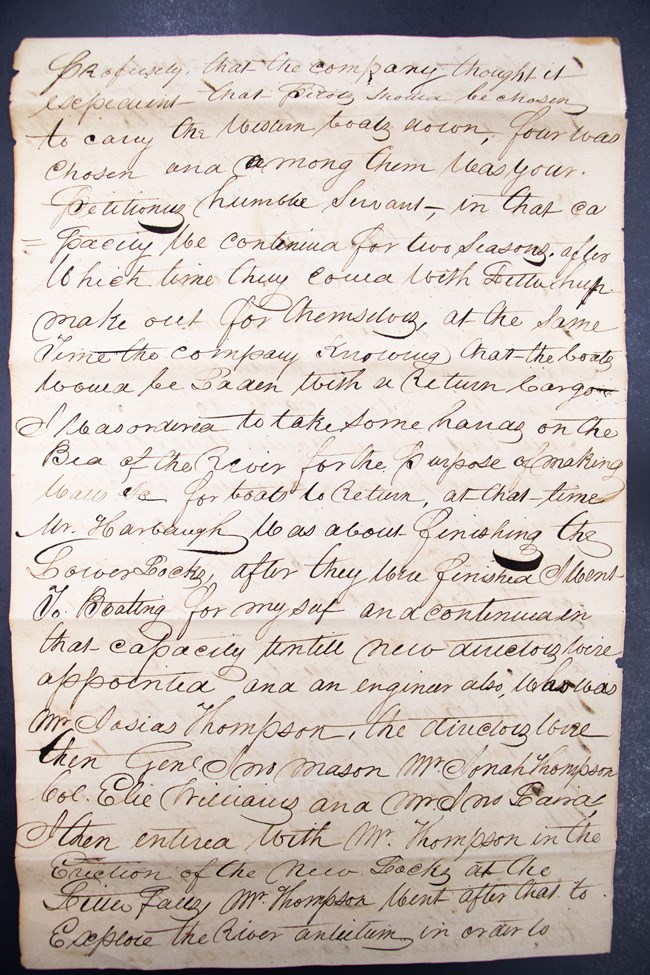 profusely, that the company thought it
expedient that Pilots should be chosen
to cary the western boats down, four was
chosen and among them was your
Petitioners humble Servant, in that ca
= pacity we continued for two Seasons, after
which time they could with
make out for themselves, at the same
time the company Knowing that the boats
would be Laden with a Return Cargo
I was ordered to take some hands on the
Bed of the River for the purpose of making
walls &c for boats to Return, at that time
Mr. Harbaugh was about finishing the
Lower Locks, after they were finished I went
To Boating for my self and continued in
that capacity untill new directors were
appointed and an engineer also, who was
Mr Josias Thompson, the directors were
then Genl Jno Mason Mr Jonah Thompson
Col. Elie Williams and Mr Jno Laird,
I then entired with Mr. Thompson in the
Erection of the New Locks at the
Little Falls, Mr Thompson went after that to
Explore the River antietum in order to